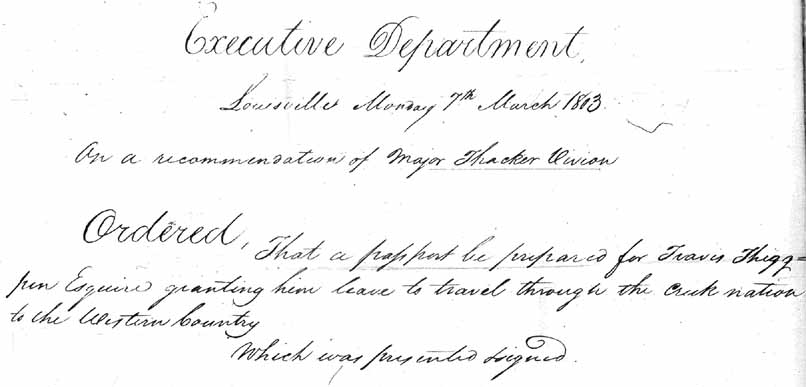 Executive Department,
Louisville Monday 7th March 1803.
On a recommendation of Major Thacker Vivion
Ordered, That a passport be prepared for Travis Thigp=
pen Esquire granting him leave to travel through the Creek nation
to the Western Country
Which was presented & signed.